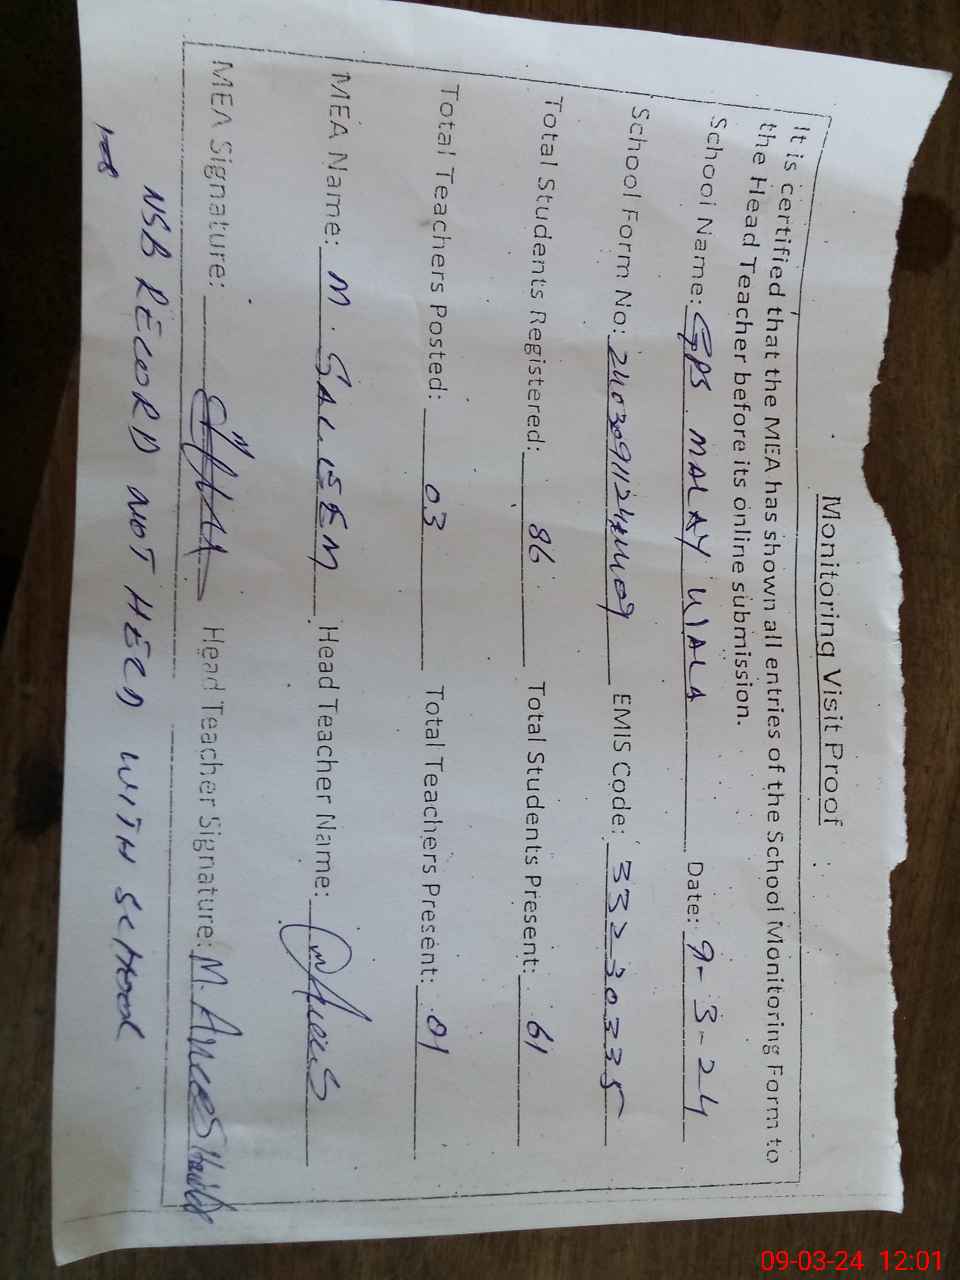 Monitoring Visit Proof
It is certified that the MEA has shown all entries of the School Monitoring Form to
the Head Teacher before its online submission.
School Name: GPS MALAY WALA Date: 9-3-24
School Form No: EMIS Code: 33230335
Total Students Registered: 86 Total Students Present: 61
Total Teachers Posted: 03 Total Teachers Present: 01
MEA Name: M. SALEEM Head Teacher Name:
MEA Signature: Head Teacher Signature: M.
NSB RECORD NOT HELD WITH SCHOOL
09-03-24 12:01